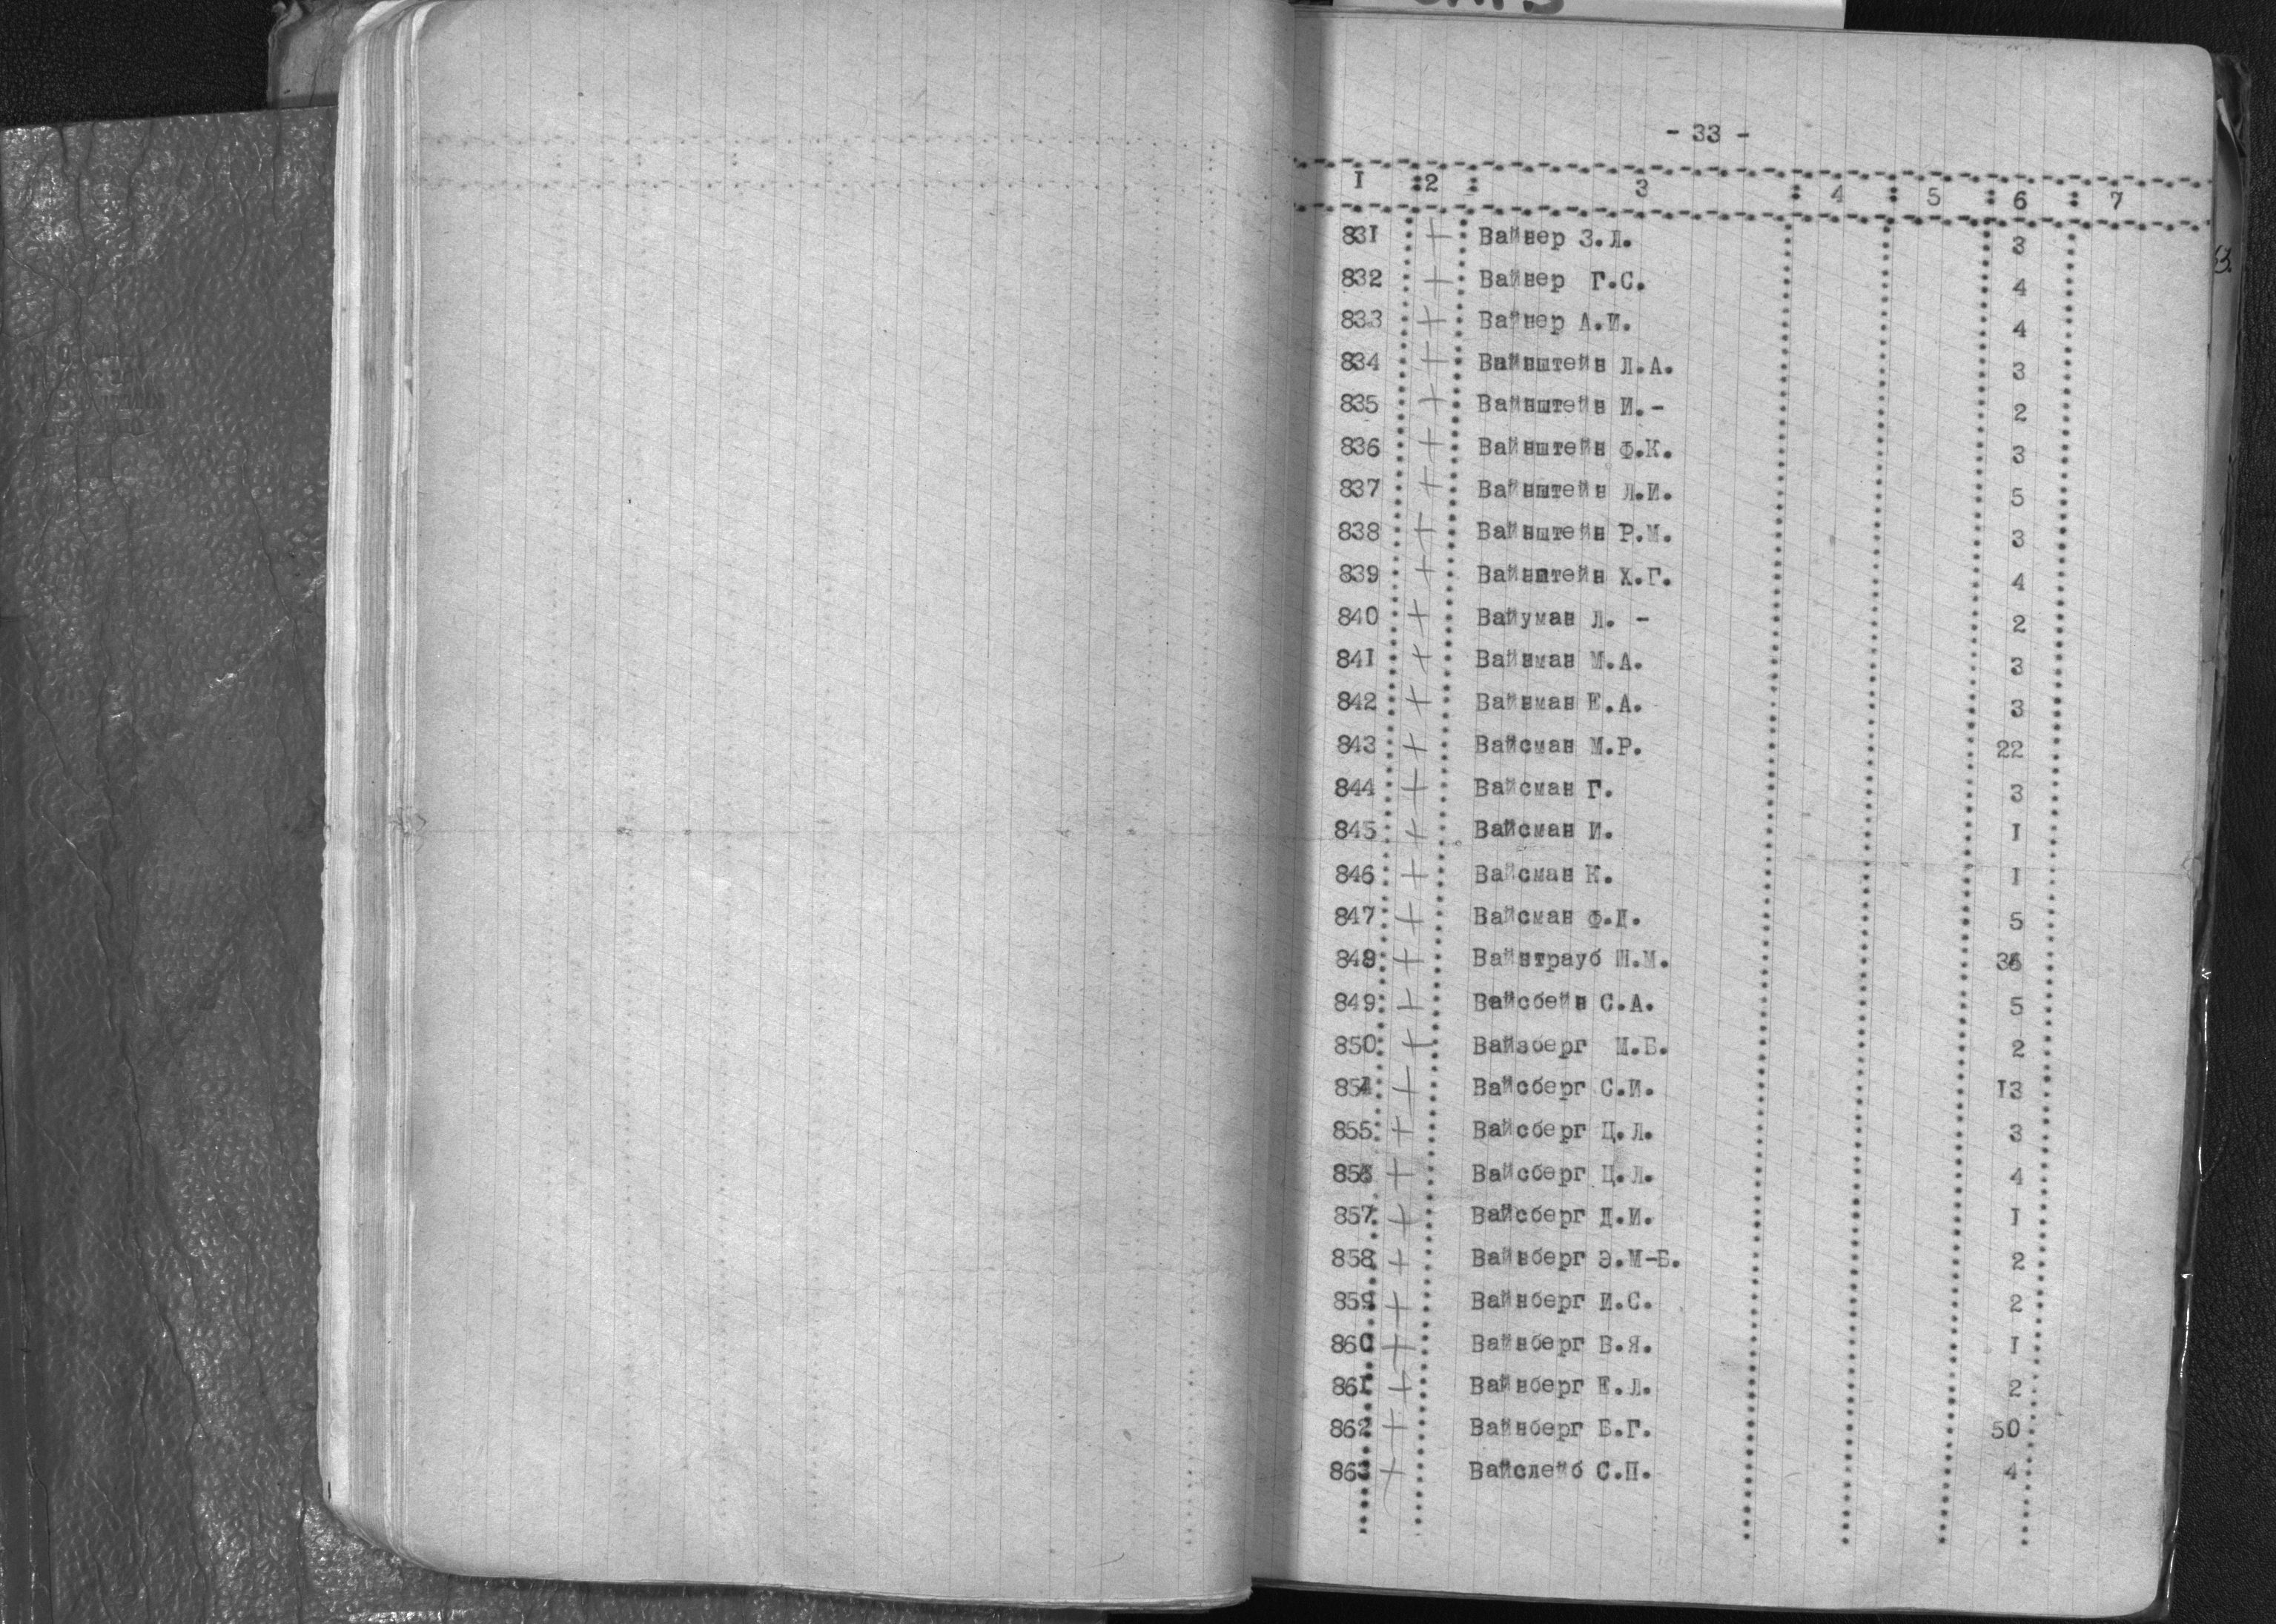 - 33 -
I :2 : 3 : 4 : 5 : 6 : 7
831 + Вайнер З.Л. 3
832 + Вайнер Г.С. 4
833 + Вайнер А.И. 4
834 + Вайнштейн Л.А. 3
835 + Вайнштейн И.- 2
836 + Вайнштейн Ф.К. 3
837 + Вайнштейн Л.И. 5
838 + Вайнштейн Р.М. 3
839 + Вайнштейн Х.Г. 4
840 + Вайуман Л. - 2
84I + Вайнман М.А. 3
842 + Вайнман Е.А. 3
843 + Вайсман М.Р. 22
844 + Вайсман Г. 3
845 + Вайсман И. I
846 + Вайсман К. I
847 + Вайсман Ф.Д. 5
848 + Вайнтрауб Ш.М. 36
849 + Вайсбейн С.А. 5
850 + Вайзберг М.Б. 2
854 + Вайсберг С.И. I3
855 + Вайсберг Ц.Л. 3
856 + Вайсберг Ц.Л. 4
857 + Вайсберг Д.И. I
858 + Вайнберг Э.М-Б. 2
859 + Вайнберг И.С. 2
860 + Вайнберг В.Я. I
86I + Вайнберг Е.Л. 2
862 + Вайнберг Б.Г. 50
863 + Вайслейб С.П. 4